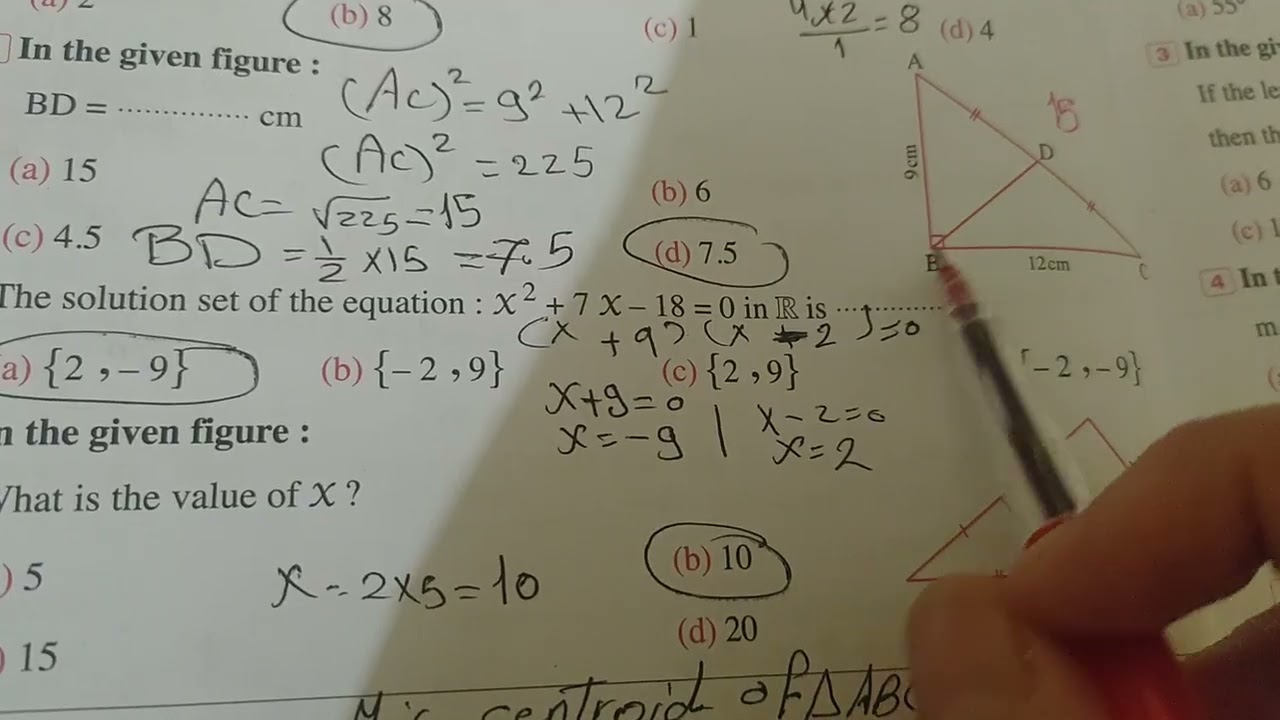 (b) 8
(c) 1
4x2/1 = 8
(d) 4
(a) 55°
In the given figure :
BD = ............... cm
(AC)² = 9² + 12²
(AC)² = 225
(a) 15
AC = √225 = 15
(b) 6
(c) 4.5
BD = 1/2 × 15 = 7.5
(d) 7.5
A
15
D
9cm
B
12cm
C
3 In the
If the
then
(a) 6
(c)
4 In
The solution set of the equation : x² + 7 x – 18 = 0 in ℝ is ..............
(x + 9) (x - 2) = 0
a) {2 , – 9}
(b) {– 2 , 9}
(c) {2 , 9}
– 2 , – 9}
x + 9 = 0 | x - 2 = 0
x = -9 | x = 2
the given figure :
What is the value of x ?
) 5
x - 2×5 = 10
(b) 10
) 15
(d) 20
centroid of ΔABC